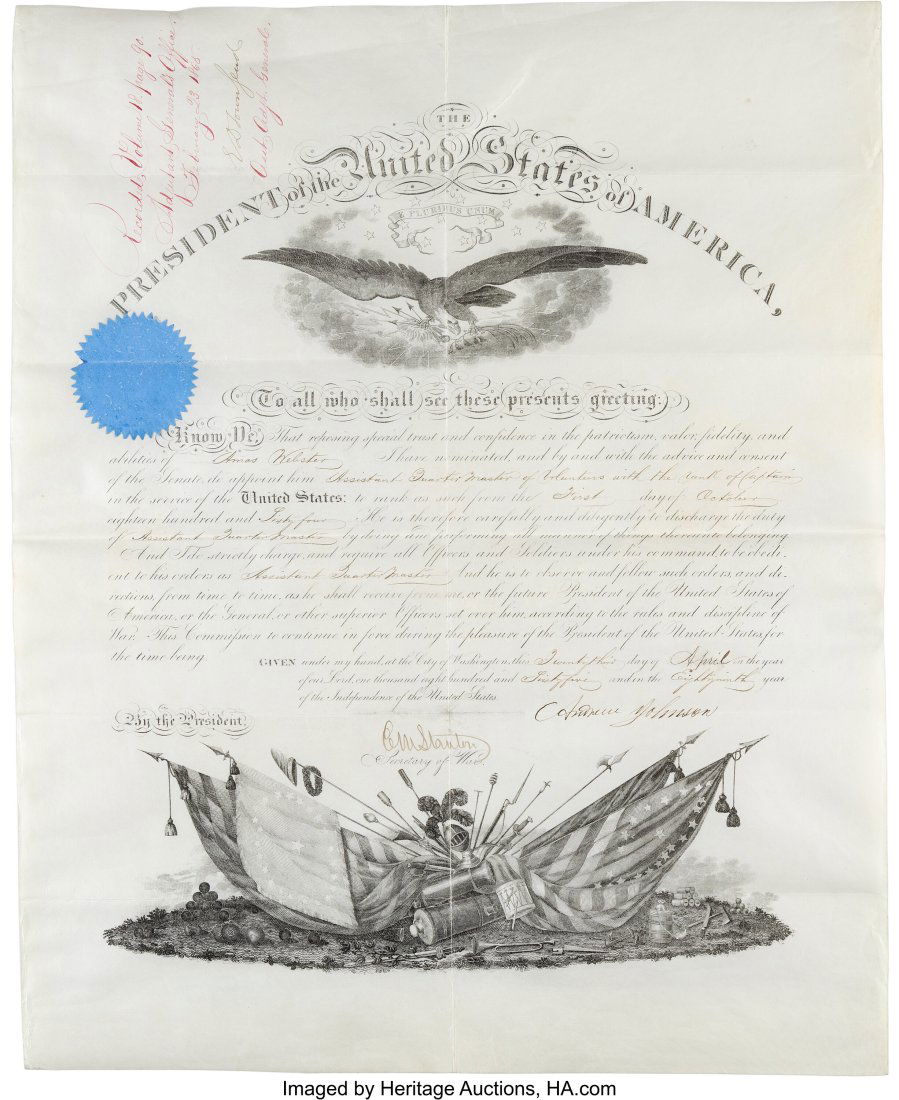 Recorded, Volume 12 page 90.
Adjutant General's Office.
February 23 1865
E D Townsend
Asst. Adjt. General.
THE
PRESIDENT of the United States of AMERICA,
E PLURIBUS UNUM
To all who shall see these presents greeting:
Know Ye, That reposing special trust and confidence in the patriotism, valor, fidelity, and
abilities of Amos Webster I have nominated, and by and with the advice and consent
of the Senate, do appoint him Assistant Quarter Master of Volunteers with the rank of Captain
in the service of the United States: to rank as such from the First day of October
eighteen hundred and Sixty four. He is therefore carefully and diligently to discharge the duty
of Assistant Quarter Master by doing and performing all manner of things thereunto belonging.
And I do strictly charge, and require all Officers and Soldiers under his command, to be obedi-
ent to his orders as Assistant Quarter Master And he is to observe and follow such orders, and di-
rections, from time to time, as he shall receive from me, or the future President of the United States of
America, or the General, or other superior Officers set over him, according to the rules and discipline of
War. This Commission to continue in force during the pleasure of the President of the United States, for
the time being.
GIVEN under my hand, at the City of Washington, this day of April in the year
of our Lord, one thousand eight hundred and Sixty five and in the Eighty ninth year
of the Independence of the United States.
Andrew Johnson
By the President
E M Stanton
Secretary of War.
Imaged by Heritage Auctions, HA.com